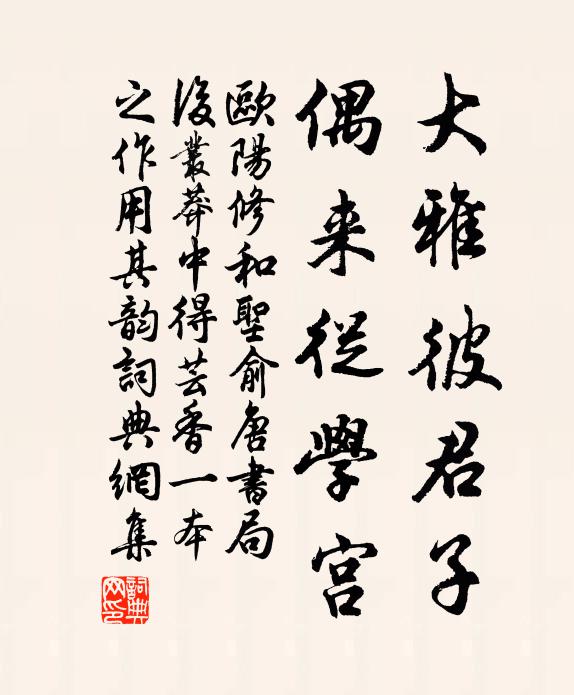 大雅彼君子
偶来從學宫
歐陽修和聖俞唐書局
後叢莽中得芸香一本
之作用其韵詞典網集
詞典网印